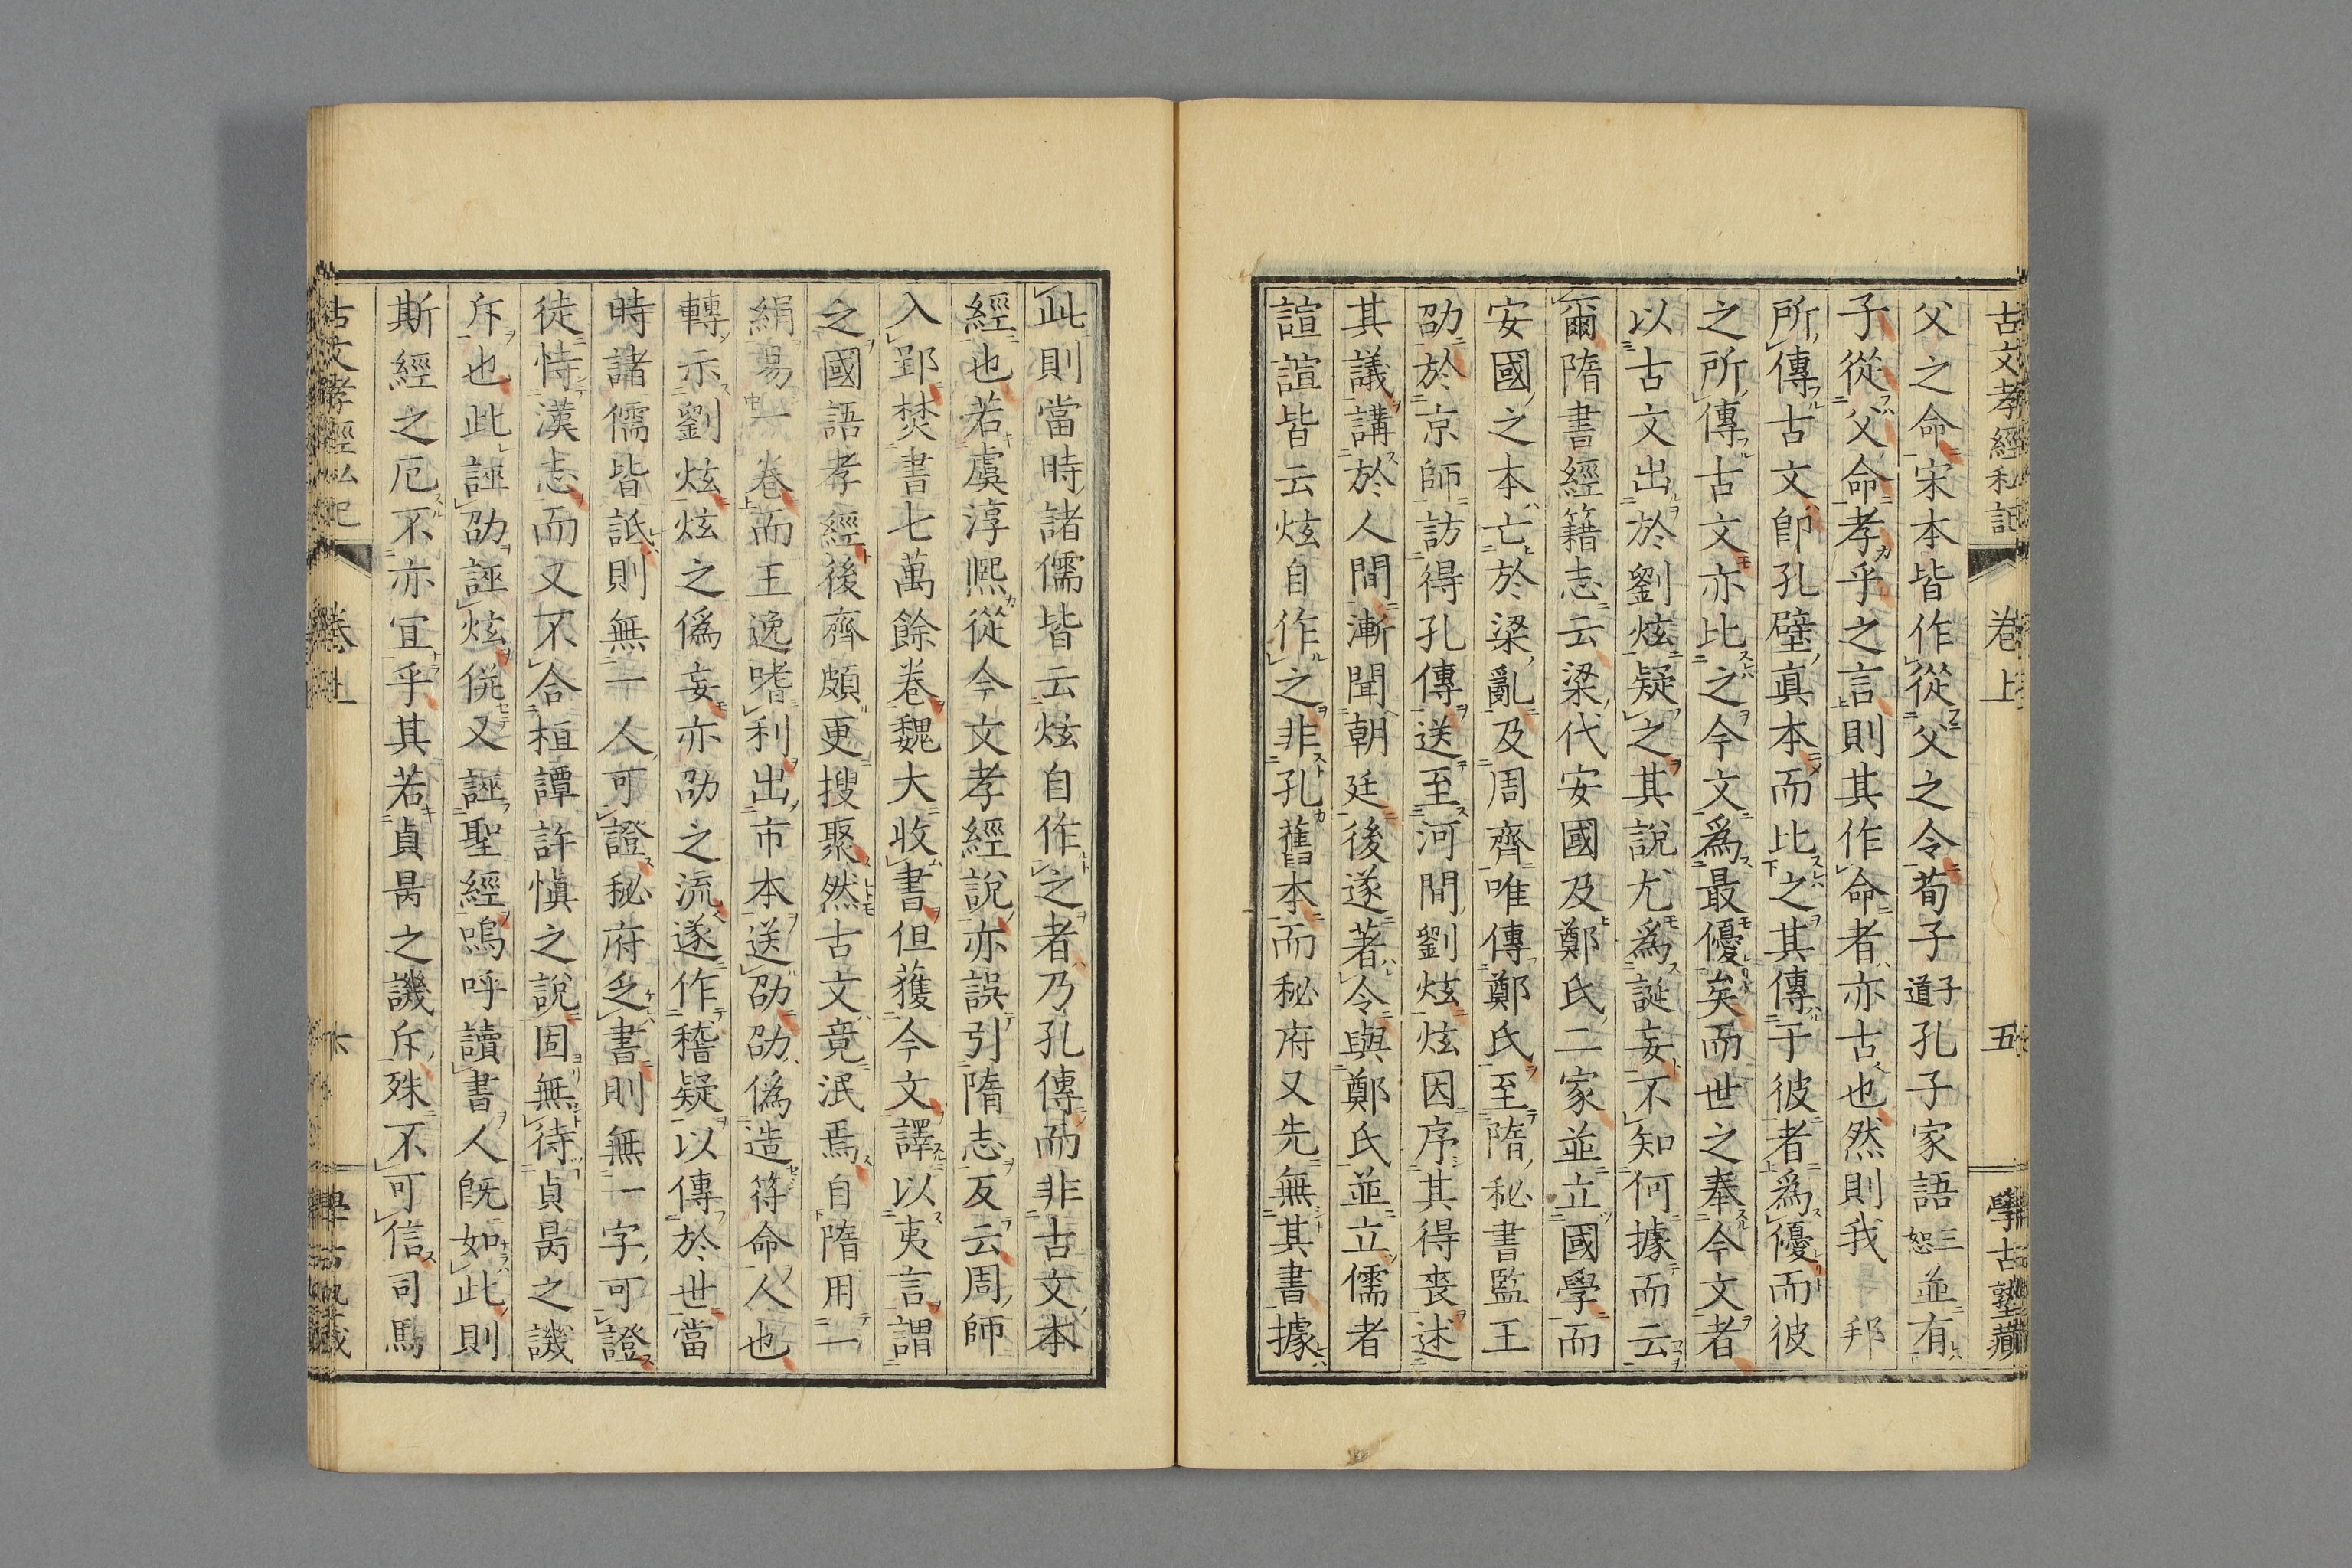 古文孝經私記 卷上 五 學古塾藏
父之命宋本皆作從父之令荀子子道孔子家語三恕並有
子從父命孝乎之言則其作命者亦古也然則我邦
所傳古文卽孔壁眞本而比之其傳于彼者爲優而彼
之所傳古文亦比之今文爲最優矣而世之奉今文者
以古文出於劉炫疑之其說尤爲誕妄不知何據而云
爾隋書經籍志云梁代安國及鄭氏二家並立國學而
安國之本亡於梁亂及周齊唯傳鄭氏至隋秘書監王
劭於京師訪得孔傳送至河間劉炫炫因序其得喪述
其議講於人間漸聞朝廷後遂著令與鄭氏並立儒者
諠諠皆云炫自作之非孔舊本而秘府又先無其書據
此則當時諸儒皆云炫自作之者乃孔傳而非古文本
經也若虞淳熙從今文孝經說亦誤引隋志反云周師
入郢焚書七萬餘卷魏大收書但獲今文譯以夷言謂
之國語孝經後齊頗更搜聚然古文竟泯焉自隋用一
絹易一卷而王逸嗜利出市本送劭劭僞造符命人也
轉示劉炫炫之僞妄亦劭之流遂作稽疑以傳於世當
時諸儒皆詆則無一人可證秘府乏書則無一字可證
徒恃漢志而又不合桓譚許愼之說固無待貞曷之譏
斥也此誣劭誣炫倂又誣聖經嗚呼讀書人旣如此則
斯經之厄不亦宜乎其若貞曷之譏斥殊不可信司馬
古文孝經私記 卷上 六 學古塾藏